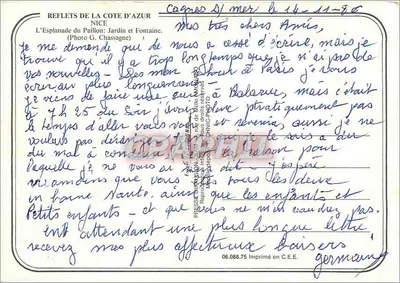 REFLETS DE LA COTE D'AZUR
NICE
L'Esplanade du Paillon: Jardin et Fontaine.
(Photo G. Chassagne)
Cagnes s/ mer le 14-11-86
Mes très chers Amis,
je me demande que de nous a cessé d'écrire, mais je
trouve qu'il y a trop longtemps que je n'ai pas de
vos nouvelles - Dès mon retour à Paris je vous
écrirai plus longuement
je viens de faire une cure à Balaruc, mais c'était
7h 25 du soir je n'avais pratiquement pas
le temps d'aller vous voir et revenir, aussi je ne
voulais pas déranger
du mal à la raison pour
laquelle je ne vous ai rien dit - J'espère
néanmoins que vous êtes tous les deux
en bonne santé, ainsi que les enfants et
Petits enfants - et que vous ne m'en voudrez pas.
En attendant une plus longue lettre
recevez mes plus affectueux baisers
germaine
06.088.75 Imprimé en C.E.E.